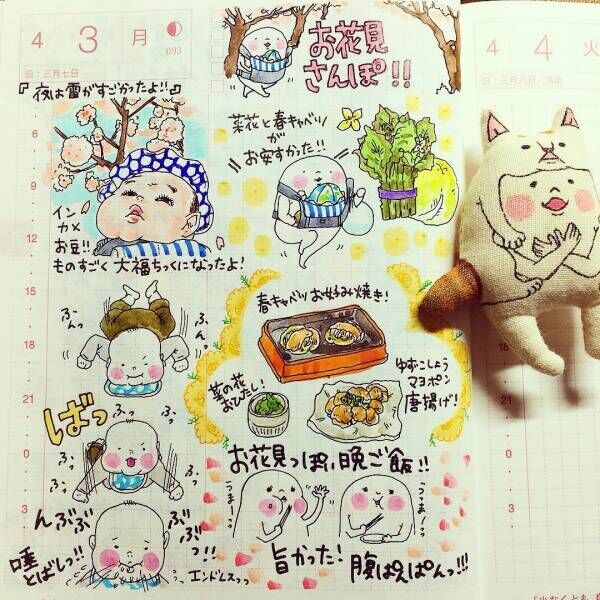 4 3 月
093
旧:三月七日
『夜は雷がすごかったよ!!』
お花見
さんぽ!!
菜花と春キャベツ
が
お安すかった!!
6
9
12
15
18
21
0
3
インカメ
お豆!!
ものすごく大福ちっくになったよ!
ふんっ
ふんっ
ばっ
ふっ
ふっ
ふっ
ふっ
んぶぶ
ぶっ!!
唾
とばしっ!!
エンドレスっっ
春キャベツお好み焼き!
菜の花
おひたし!
ゆずこしょう
マヨポン
唐揚げ!
お花見っぽい晩ご飯!!
うまーっっ
うまーっっ
旨かった!
腹ぱんぱんっ!!!
4 4 火
旧:三月八日
18
21
0
3